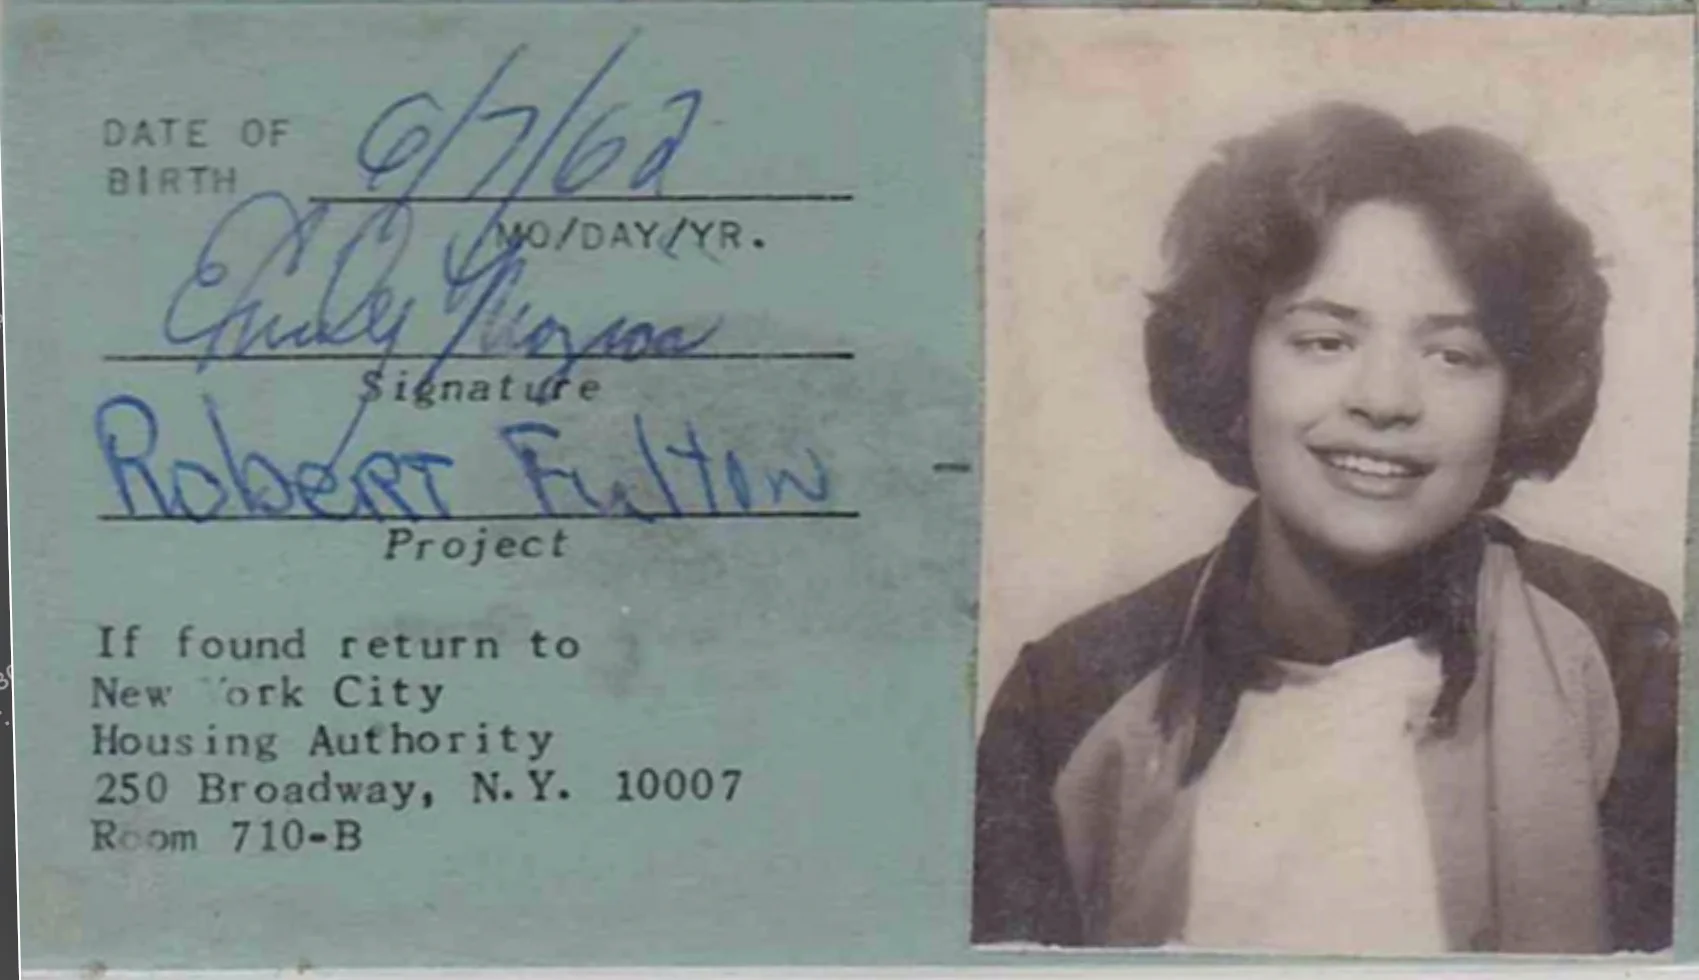 DATE OF
BIRTH 6/7/62
MO/DAY/YR.
Emily
Signature
Robert Fulton
Project
If found return to
New ork City
Housing Authority
250 Broadway, N.Y. 10007
Room 710-B